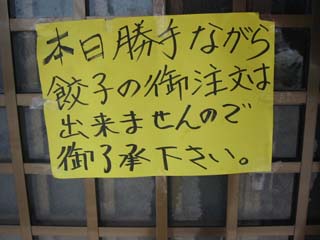 本日勝手ながら
餃子の御注文は
出来ませんので
御了承下さい。